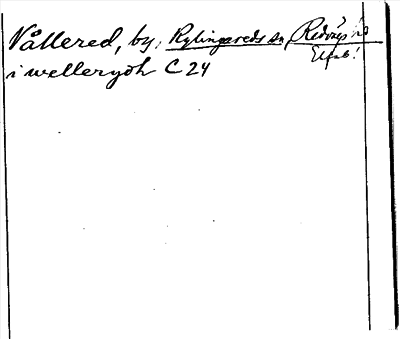 Vållered, by, Rylingareds sn, Redvägs hd
Elfsb!
i wellerydh C 24